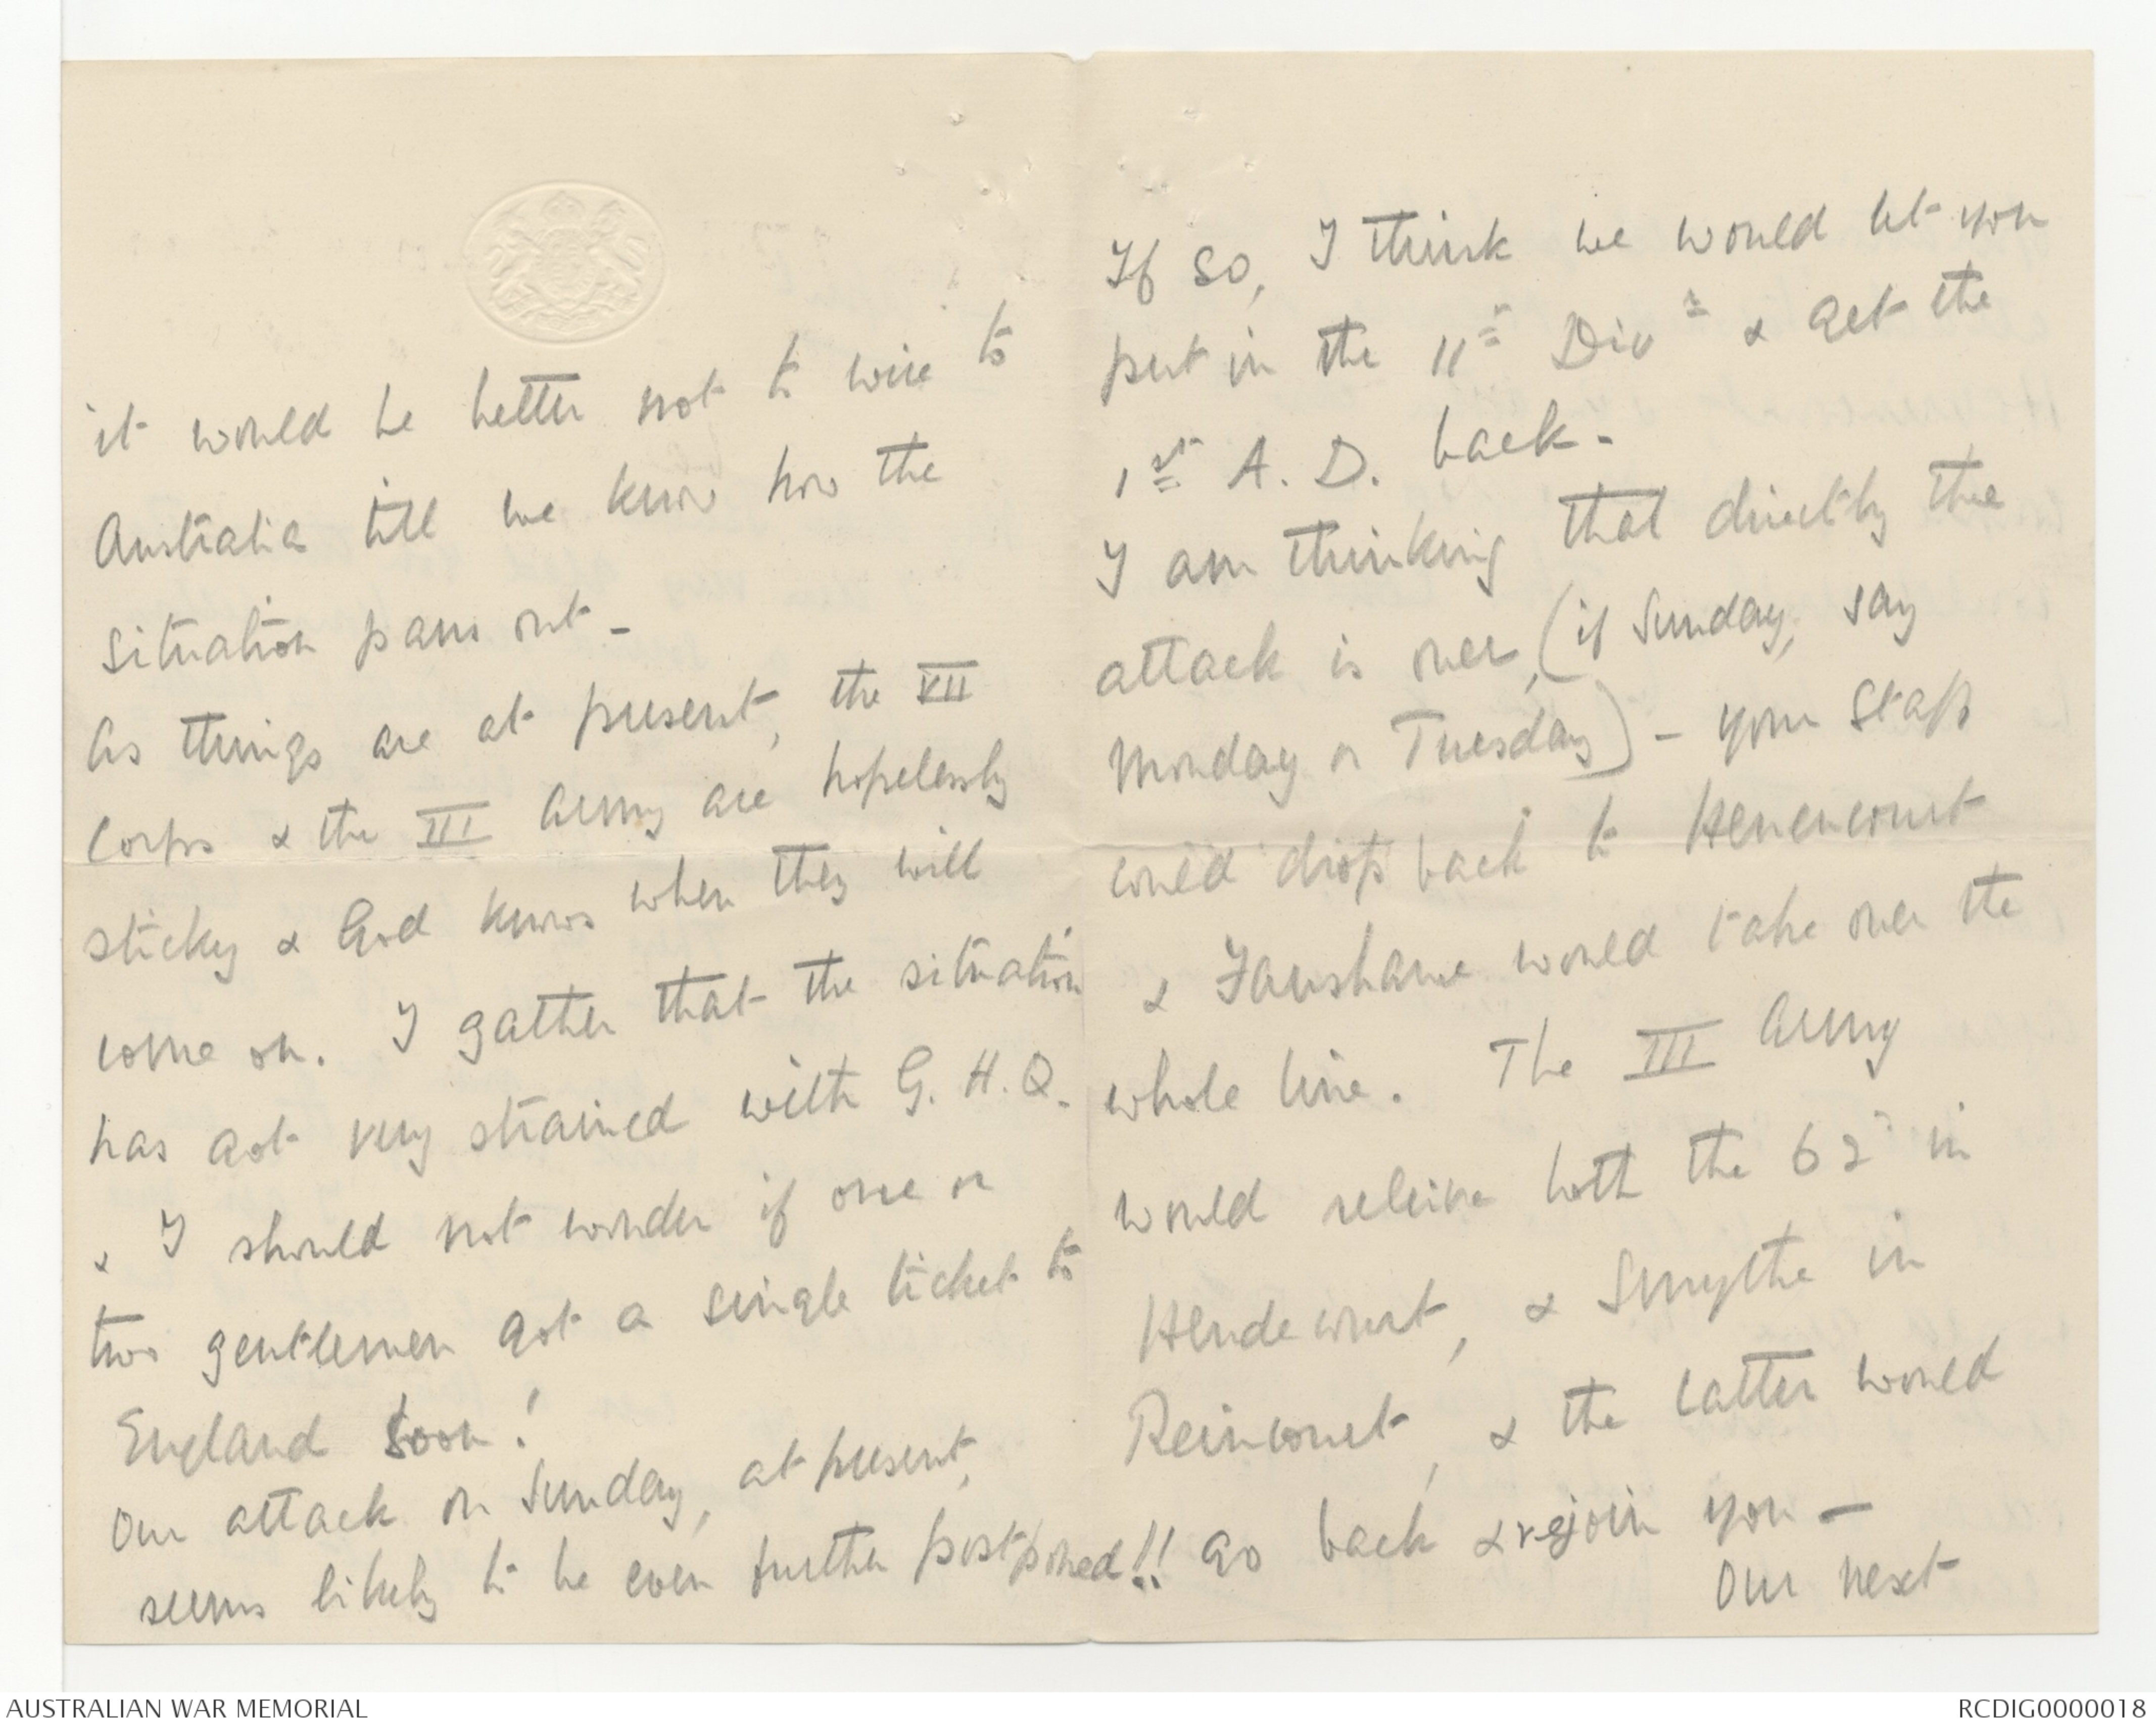 it would be better not to wire to
Australia till we know how the
situation pans out -
As things are at present, the VII
Corps & the III Army are hopelessly
sticky & God knows when they will
come on. I gather that the situation
has got very strained with G.H.Q.
& I should not wonder if one or
two gentlemen got a single ticket to
England soon!
Our attack on Sunday, at present,
seems likely to be even further postponed!!
If so, I think we would let you
put in the 11th Divn & get the
1st A.D. back -
I am thinking that directly the
attack is over, (if Sunday, say
Monday or Tuesday) - your Staff
could drop back to Henencourt
& Fanshawe would take over the
whole line. The III Army
would releive both the 62nd in
Hendecourt, & Smythe in
Reincourt, & the latter would
go back & rejoin you -
Our next
AUSTRALIAN WAR MEMORIAL
RCDIG0000018